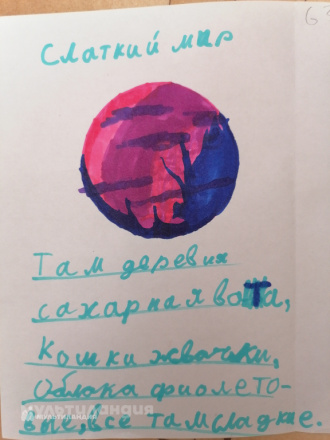 Слаткий мир
Там деревия
сахарная вота,
кошки жвачки,
облока фиолето-
вые, все там сладкие.
Мультиландия